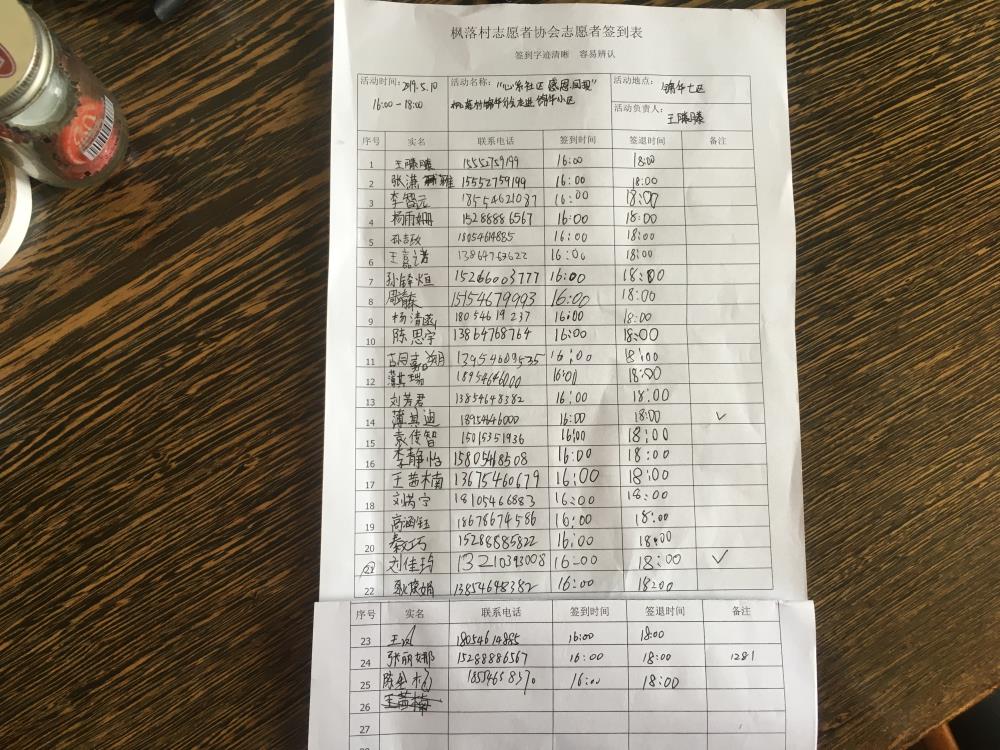 枫落村志愿者协会志愿者签到表
签到字迹清晰 容易辨认
活动时间: 2019.5.10 16:00-18:00
活动名称: "心系社区 感恩回报" 锦华小区
活动地点: 锦华七区
活动负责人: 王滕臻
序号 实名 联系电话 签到时间 签退时间 备注
1 王滕臻 15552759199 16:00 18:00
2 张潇 15552759199 16:00 18:00
3 李智元 18554621087 16:00 18:00
4 杨雨姗 15288886567 16:00 18:00
5 18054614885 16:00 18:00
6 王 16:00 18:00
7 孙铎烜 15266003777 16:00 18:00
8 15154679993 16:00 18:00
9 杨清 18054619237 16:00 18:00
10 陈思宇 13864768764 16:00 18:00
11 13954609535 16:00 18:00
12 瑞 18954646000 16:00 18:00
13 刘芳君 13854648382 16:00 18:00
14 薄其迪 18954646000 16:00 18:00 ✓
15 袁传智 15015351936 16:00 18:00
16 李静怡 15805468508 16:00 18:00
17 王茜楠 13675460679 16:00 18:00
18 刘 宁 18105466883 16:00 18:00
19 高涵钰 18678674586 16:00 18:00
20 秦巧 15288885822 16:00 18:00
21 刘佳玲 13210393008 16:00 18:00 ✓
22 娟 13854648382 16:00 18:00
序号 实名 联系电话 签到时间 签退时间 备注
23 王 18054614885 16:00 18:00
24 张丽娜 15288886567 16:00 18:00 1281
25 陈 16:00 18:00
26 王茜楠
27